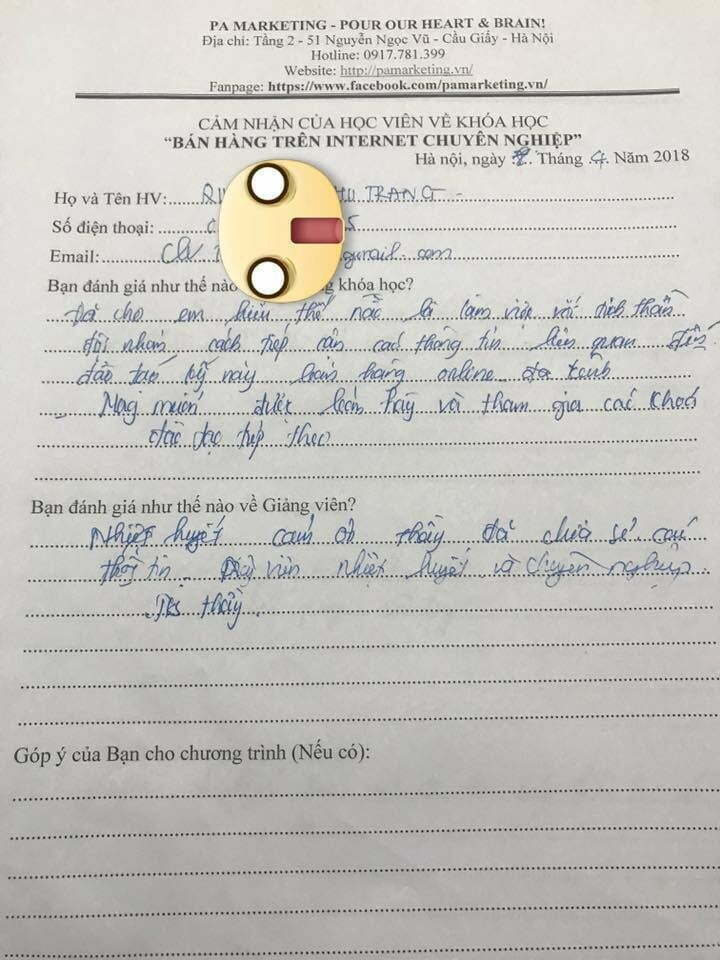 PA MARKETING - POUR OUR HEART & BRAIN!
Địa chỉ: Tầng 2 - 51 Nguyễn Ngọc Vũ - Cầu Giấy - Hà Nội
Hotline: 0917.781.399
Website: http://pamarketing.vn/
Fanpage: https://www.facebook.com/pamarketing.vn/
CẢM NHẬN CỦA HỌC VIÊN VỀ KHÓA HỌC
“BÁN HÀNG TRÊN INTERNET CHUYÊN NGHIỆP”
Hà nội, ngày Tháng 4 Năm 2018
Họ và Tên HV: TRANG
Số điện thoại:
Email:
Bạn đánh giá như thế nào khóa học?
Đã cho em hiểu thế nào là làm việc với tinh thần
đội nhóm cách tiếp cận các thông tin liên quan đến
này bán hàng online
Mong muốn được thầy và tham gia các khoá
tiếp theo
Bạn đánh giá như thế nào về Giảng viên?
Nhiệt huyết cảm ơn thầy đã chia sẻ các
nhiệt huyết và chuyên nghiệp
thầy
Góp ý của Bạn cho chương trình (Nếu có):